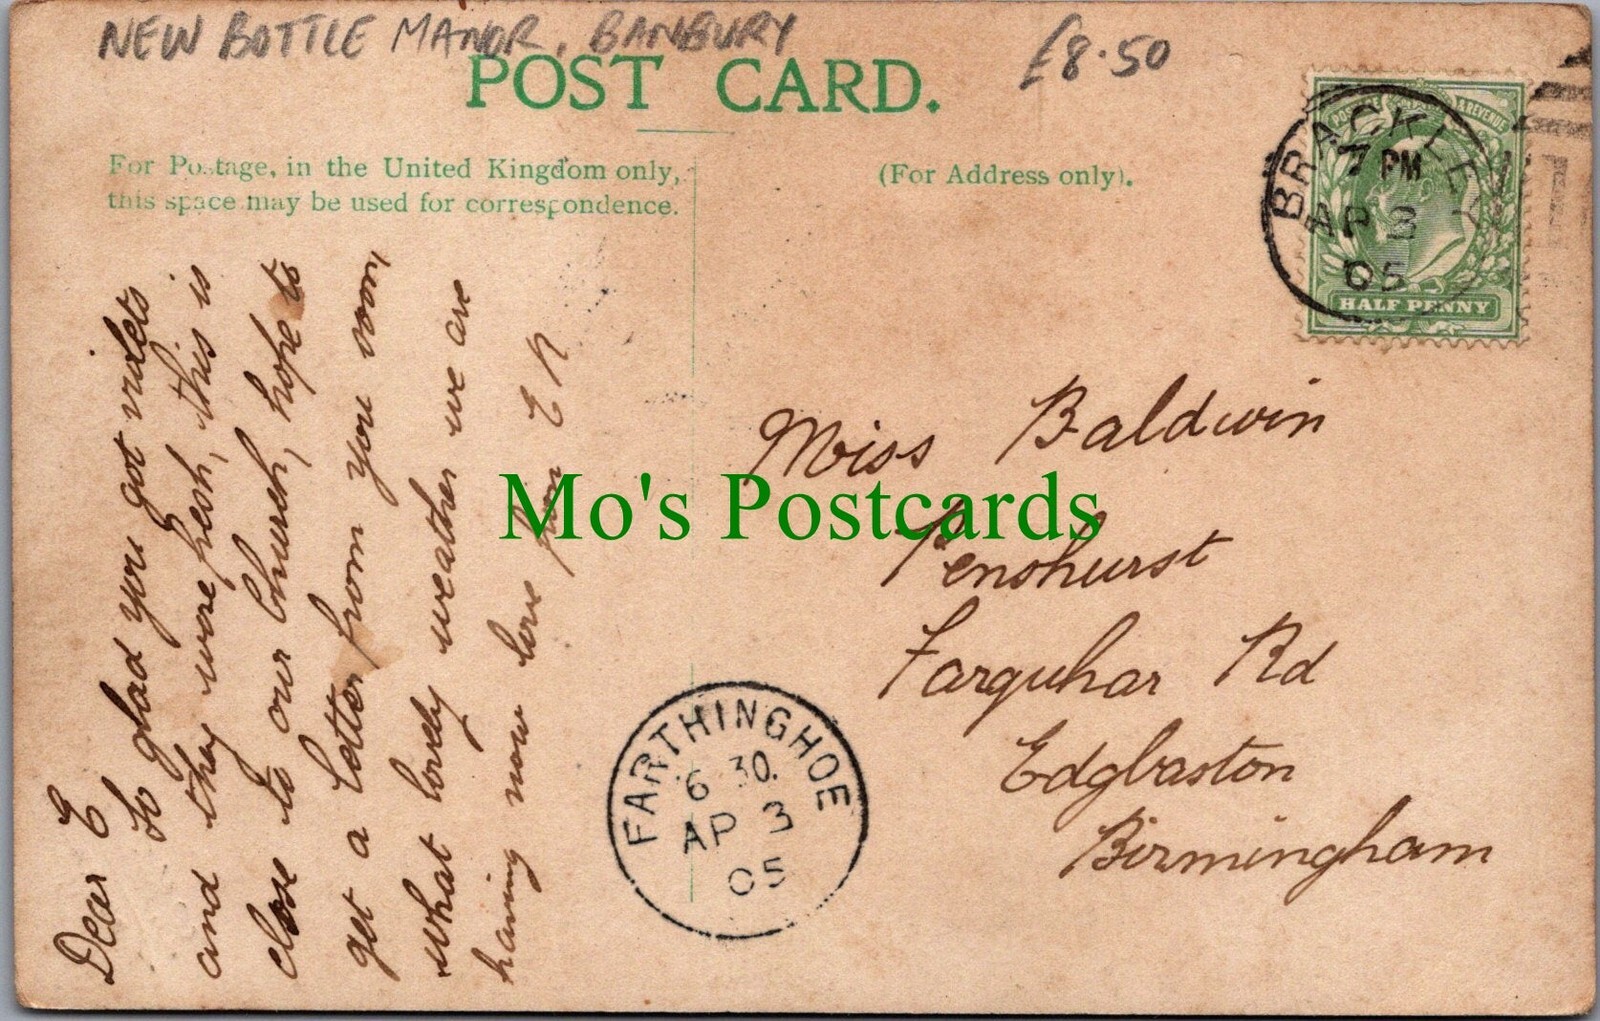 NEW BOTTLE MANOR, BANBURY
£8.50
POST CARD.
For Postage, in the United Kingdom only,
this space may be used for correspondence.
(For Address only).
BRACKLEY
7 PM
AP 3
05
POSTAGE & REVENUE
HALF PENNY
Dear E
So glad you got violets
and they were fresh, this is
close to our Church, hope to
get a letter from you soon,
what lovely weather we are
having now love from E N
Miss Baldwin
Penshurst
Farquhar Rd
Edgbaston
Birmingham
FARTHINGHOE
6 30.
AP 3
05
Mo's Postcards